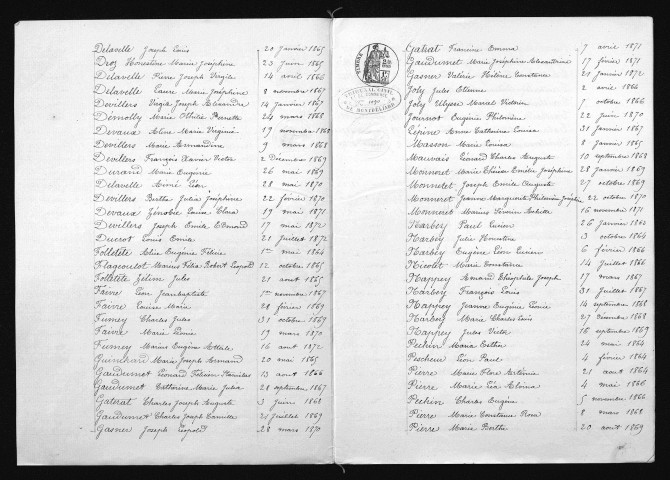 Delavelle Joseph Louis 20 janvier 1865
Droz Honestine Marie Joséphine 23 juin 1865
Delavelle Pierre Joseph Virgile 14 avril 1866
Delavelle Laure Marie Joséphine 8 novembre 1867
Devillers Virgile Joseph Alexandre 14 janvier 1867
Demolly Marie Othilie Pernette 24 mars 1868
Devaux Aline Marie Virginie 19 novembre 1868
Devillers Marie Armandine 9 mars 1868
Devillers François Xavier Victor 2 décembre 1869
Durand Marie Eugénie 26 mai 1869
Delavelle Aimé Léon 28 mai 1870
Devillers Bertha Julia Joséphine 22 février 1870
Devaux Zénobie Louise Elma 19 mai 1871
Devillers Joseph Emile Edmond 17 mai 1872
Ducrot Louis Emile 21 juillet 1872
Folletête Alix Eugénie Féline 1er mai 1864
Flageoulot Marius Félix Robert Léopold 12 octobre 1865
Folletête Zélim Jules 21 août 1865
Faivre Léon Jeanbaptiste 1er novembre 1867
Faivre Louise Marie 28 février 1869
Fumey Charles Jules 31 octobre 1869
Faivre Marie Léonie 19 mars 1870
Fumey Marius Eugène Attile 16 août 1872
Guinchard Marie Joseph Armand 20 mai 1865
Gaudumet Léonard Félicien Stanislas 13 août 1866
Gaudumet Catherine Marie Julia 28 septembre 1867
Gatirat Charles Joseph Auguste 3 juin 1868
Gaudumet Charles Joseph Camille 21 juillet 1869
Gasner Joseph Léopold 28 mars 1870
TIMBRE
TRIBUNAL CIVIL
DE MONTBÉLIARD
Gatirat Francine Emma 7 avril 1871
Gaudumet Marie Joséphine Alexandrine 17 février 1871
Gasner Valérie Hélène Constance 21 janvier 1872
Joly Jules Etienne 2 avril 1866
Joly Ulysse Marcel Victorin 7 octobre 1866
Journot Eugénie Philomène 22 juin 1870
Lépine Anne Catherine Louise 31 janvier 1867
Masson Marie Louisa 8 janvier 1865
Mauvais Léonard Charles Auguste 10 septembre 1868
Monnoret Marie Thérèse Emélie Joséphine 28 janvier 1869
Monnetet Joseph Emile Auguste 27 octobre 1869
Monnoret Jeanne Marguerite Philomène Joseph 22 octobre 1870
Monnoret Marius Firmin Achille 16 novembre 1871
Narbey Paul Lucien 26 janvier 1864
Narbey Julie Honestine 13 octobre 1864
Narbey Eugène Léon Lucien 6 février 1866
Nicolet Marie Constance 14 juillet 1866
Nappey Amand Théophile Joseph 7 mars 1867
Narbey François Louis 31 juillet 1867
Nappey Jeanne Eugénie Léonie 14 septembre 1868
Narbey Marie Charles Louis 27 décembre 1868
Nappey Jules Victor 16 septembre 1869
Pechin Maria Esther 24 mai 1864
Pescheur Léon Paul 4 février 1864
Pierre Marie Flore Artémise 21 août 1864
Pierre Marie Léa Eloisa 4 mai 1866
Pechin Charles Eugène 5 novembre 1866
Pierre Marie Constance Rosa 8 mars 1868
Pierre Marie Berthe 20 août 1869